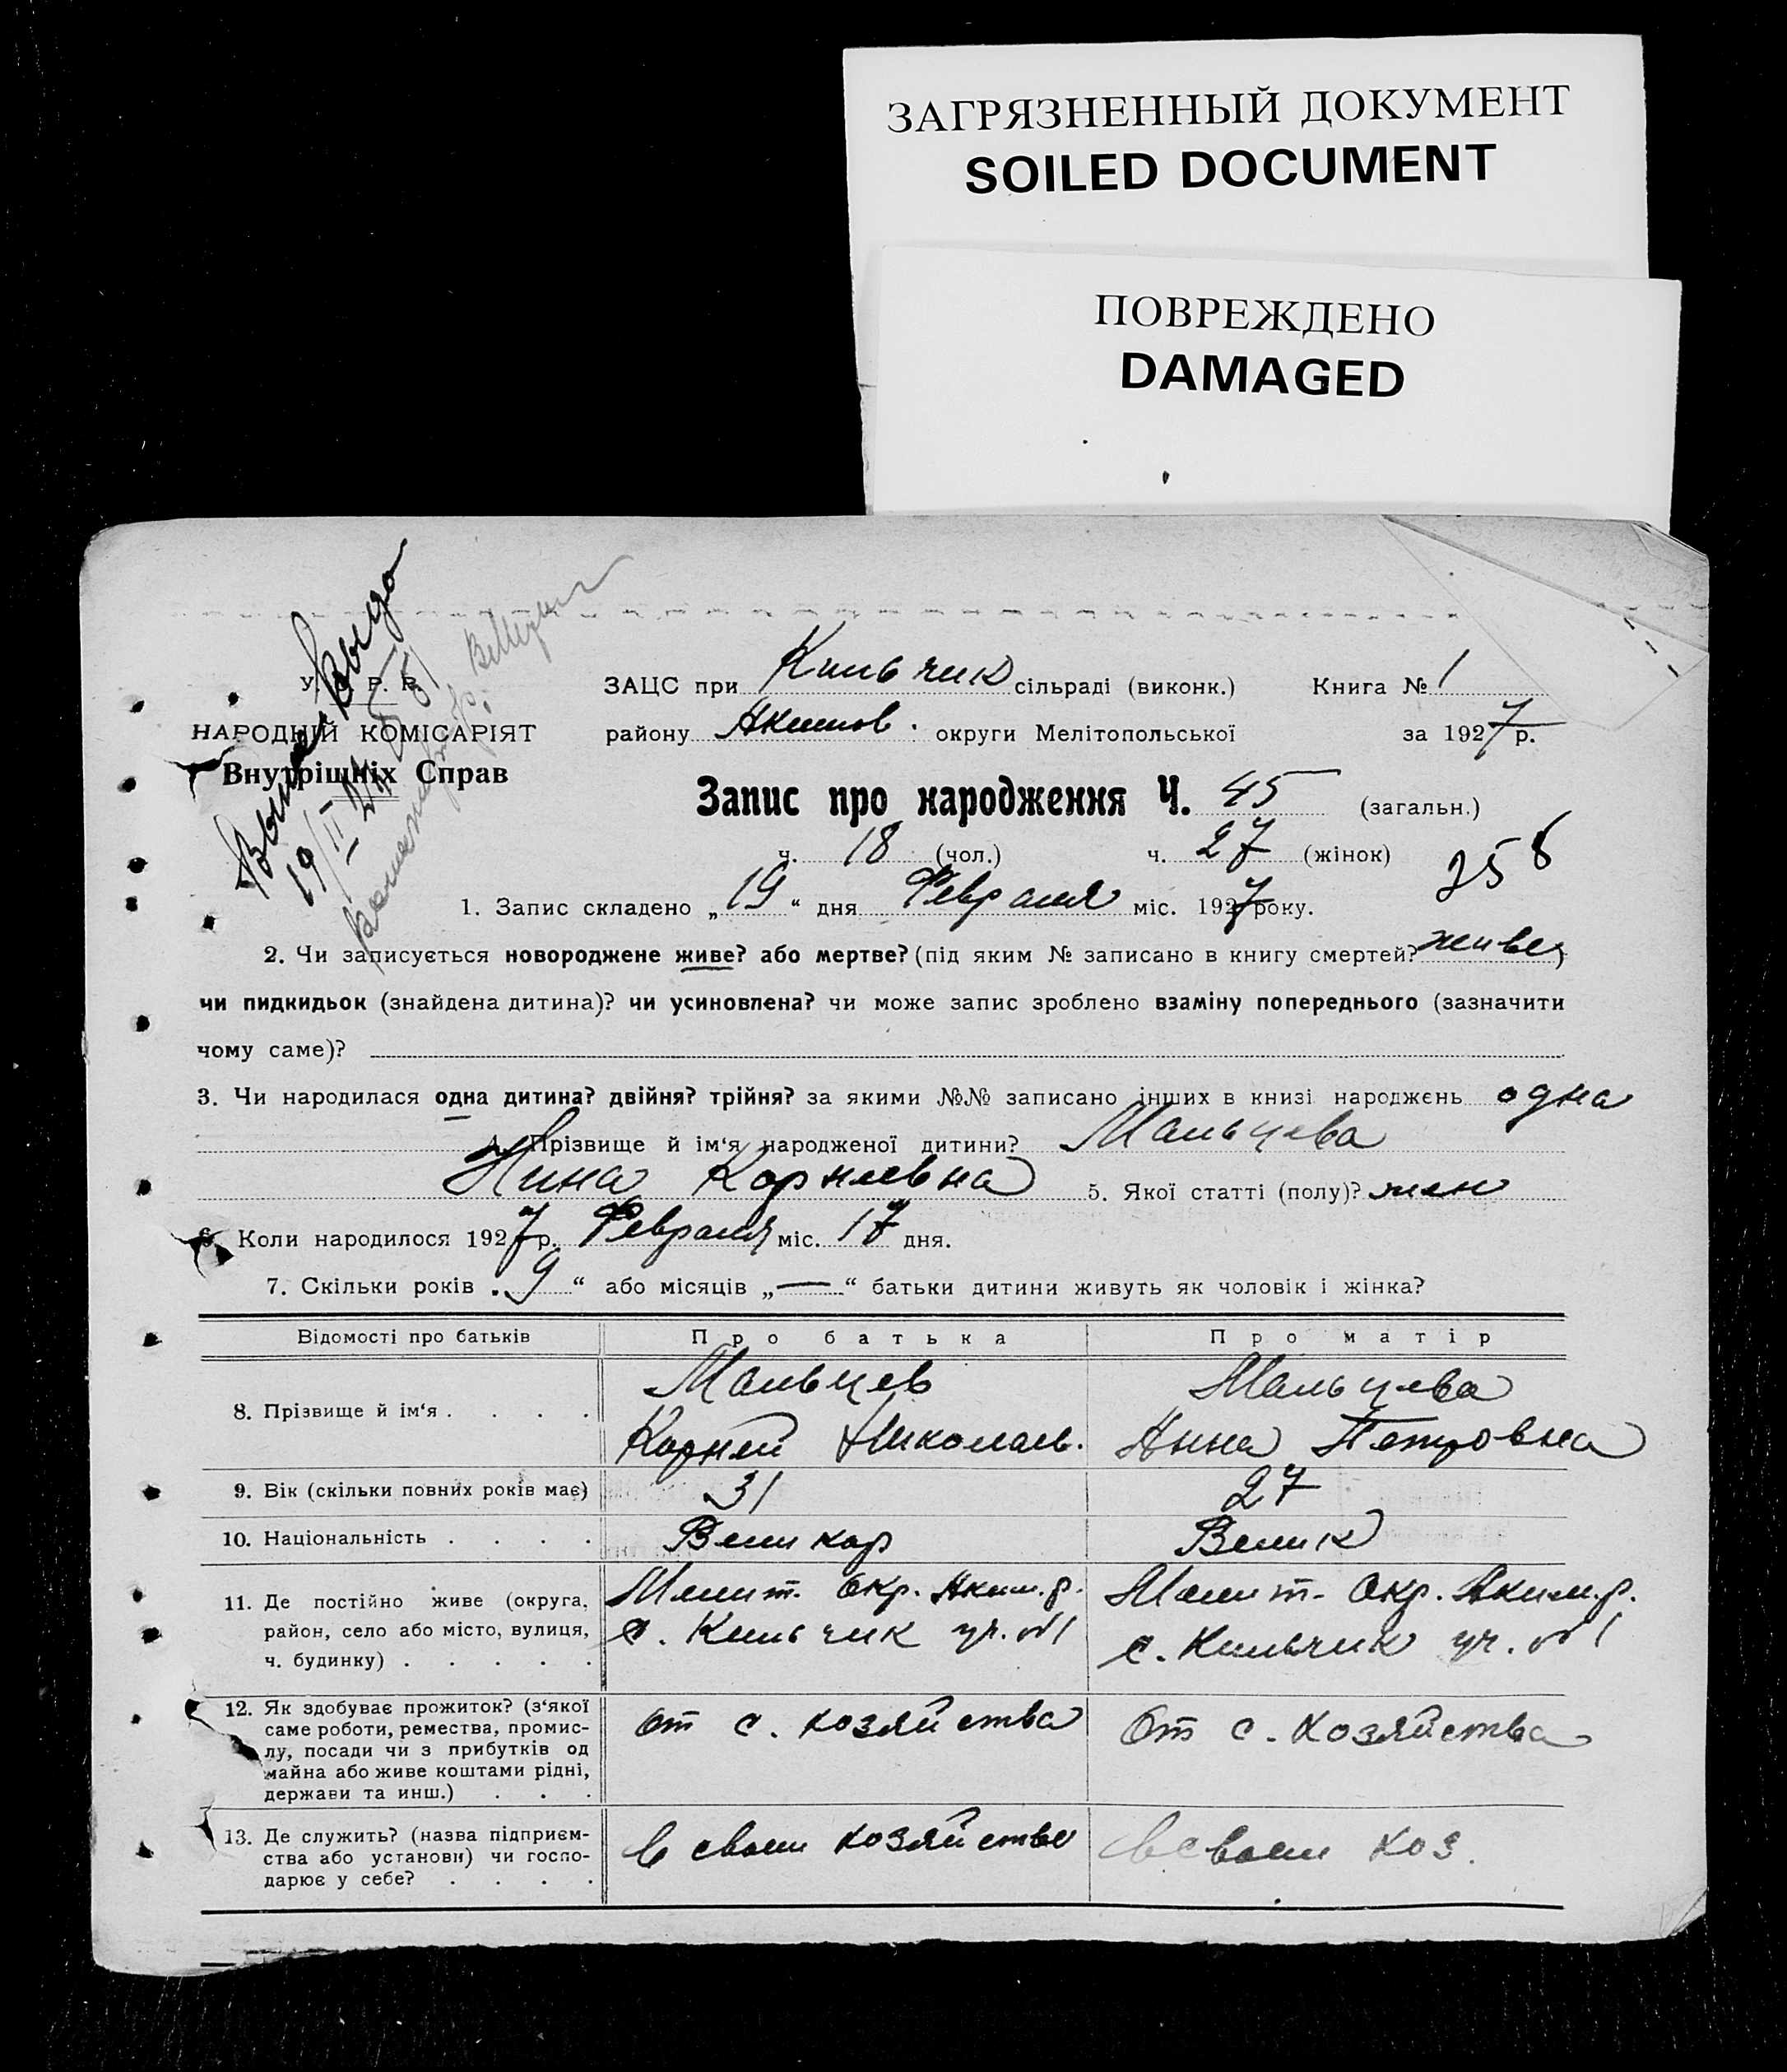 ЗАГРЯЗНЕННЫЙ ДОКУМЕНТ
SOILED DOCUMENT
ПОВРЕЖДЕНО
DAMAGED
У. С. Р. Р.
НАРОДНІЙ КОМІСАРІЯТ
Внутрішніх Справ
19/II
ЗАЦС при Кильчик сільраді (виконк.) Книга № 1
району Акимов. округи Мелітопольської за 1927 р.
Запис про народження Ч. 45 (загальн.)
ч. 18 (чол.) ч. 27 (жінок)
258
1. Запис складено „19“ дня Февраля міс. 1927 року.
2. Чи записується новороджене живе? або мертве? (під яким № записано в книгу смертей? живе)
чи пидкидьок (знайдена дитина)? чи усиновлена? чи може запис зроблено взаміну попереднього (зазначити
чому саме)?
3. Чи народилася одна дитина? двійня? трійня? за якими №№ записано інших в книзі народжень одна
4. Прізвище й ім‘я народженої дитини? Мальцева
Нина Корнеевна 5. Якої статті (полу)? жен
6. Коли народилося 1927 р. Февраля міс. 17 дня.
7. Скільки років „9“ або місяців „—“ батьки дитини живуть як чоловік і жінка?
Відомості про батьків Про батька Про матір
8. Прізвище й ім‘я . . . . Мальцев Мальцева
Корней Николаев. Анна Петровна
9. Вік (скільки повних років має) 31 27
10. Національність . . . . Великор Велик
11. Де постійно живе (округа, район, село або місто, вулиця, ч. будинку) . . . . .
Мелит. Окр. Аким. р.
с. Кильчик уч. №1
Мелит. Окр. Аким. р.
с. Кильчик уч. №1
12. Як здобуває прожиток? (з‘якої
саме роботи, ремества, промис-
лу, посади чи з прибутків од
майна або живе коштами рідні,
держави та инш.) . . .
От с. хозяйства
От с. хозяйства
13. Де служить? (назва підприєм-
ства або установи) чи госпо-
дарює у себе? . . . .
в своем хозяйстве
в своем хоз.